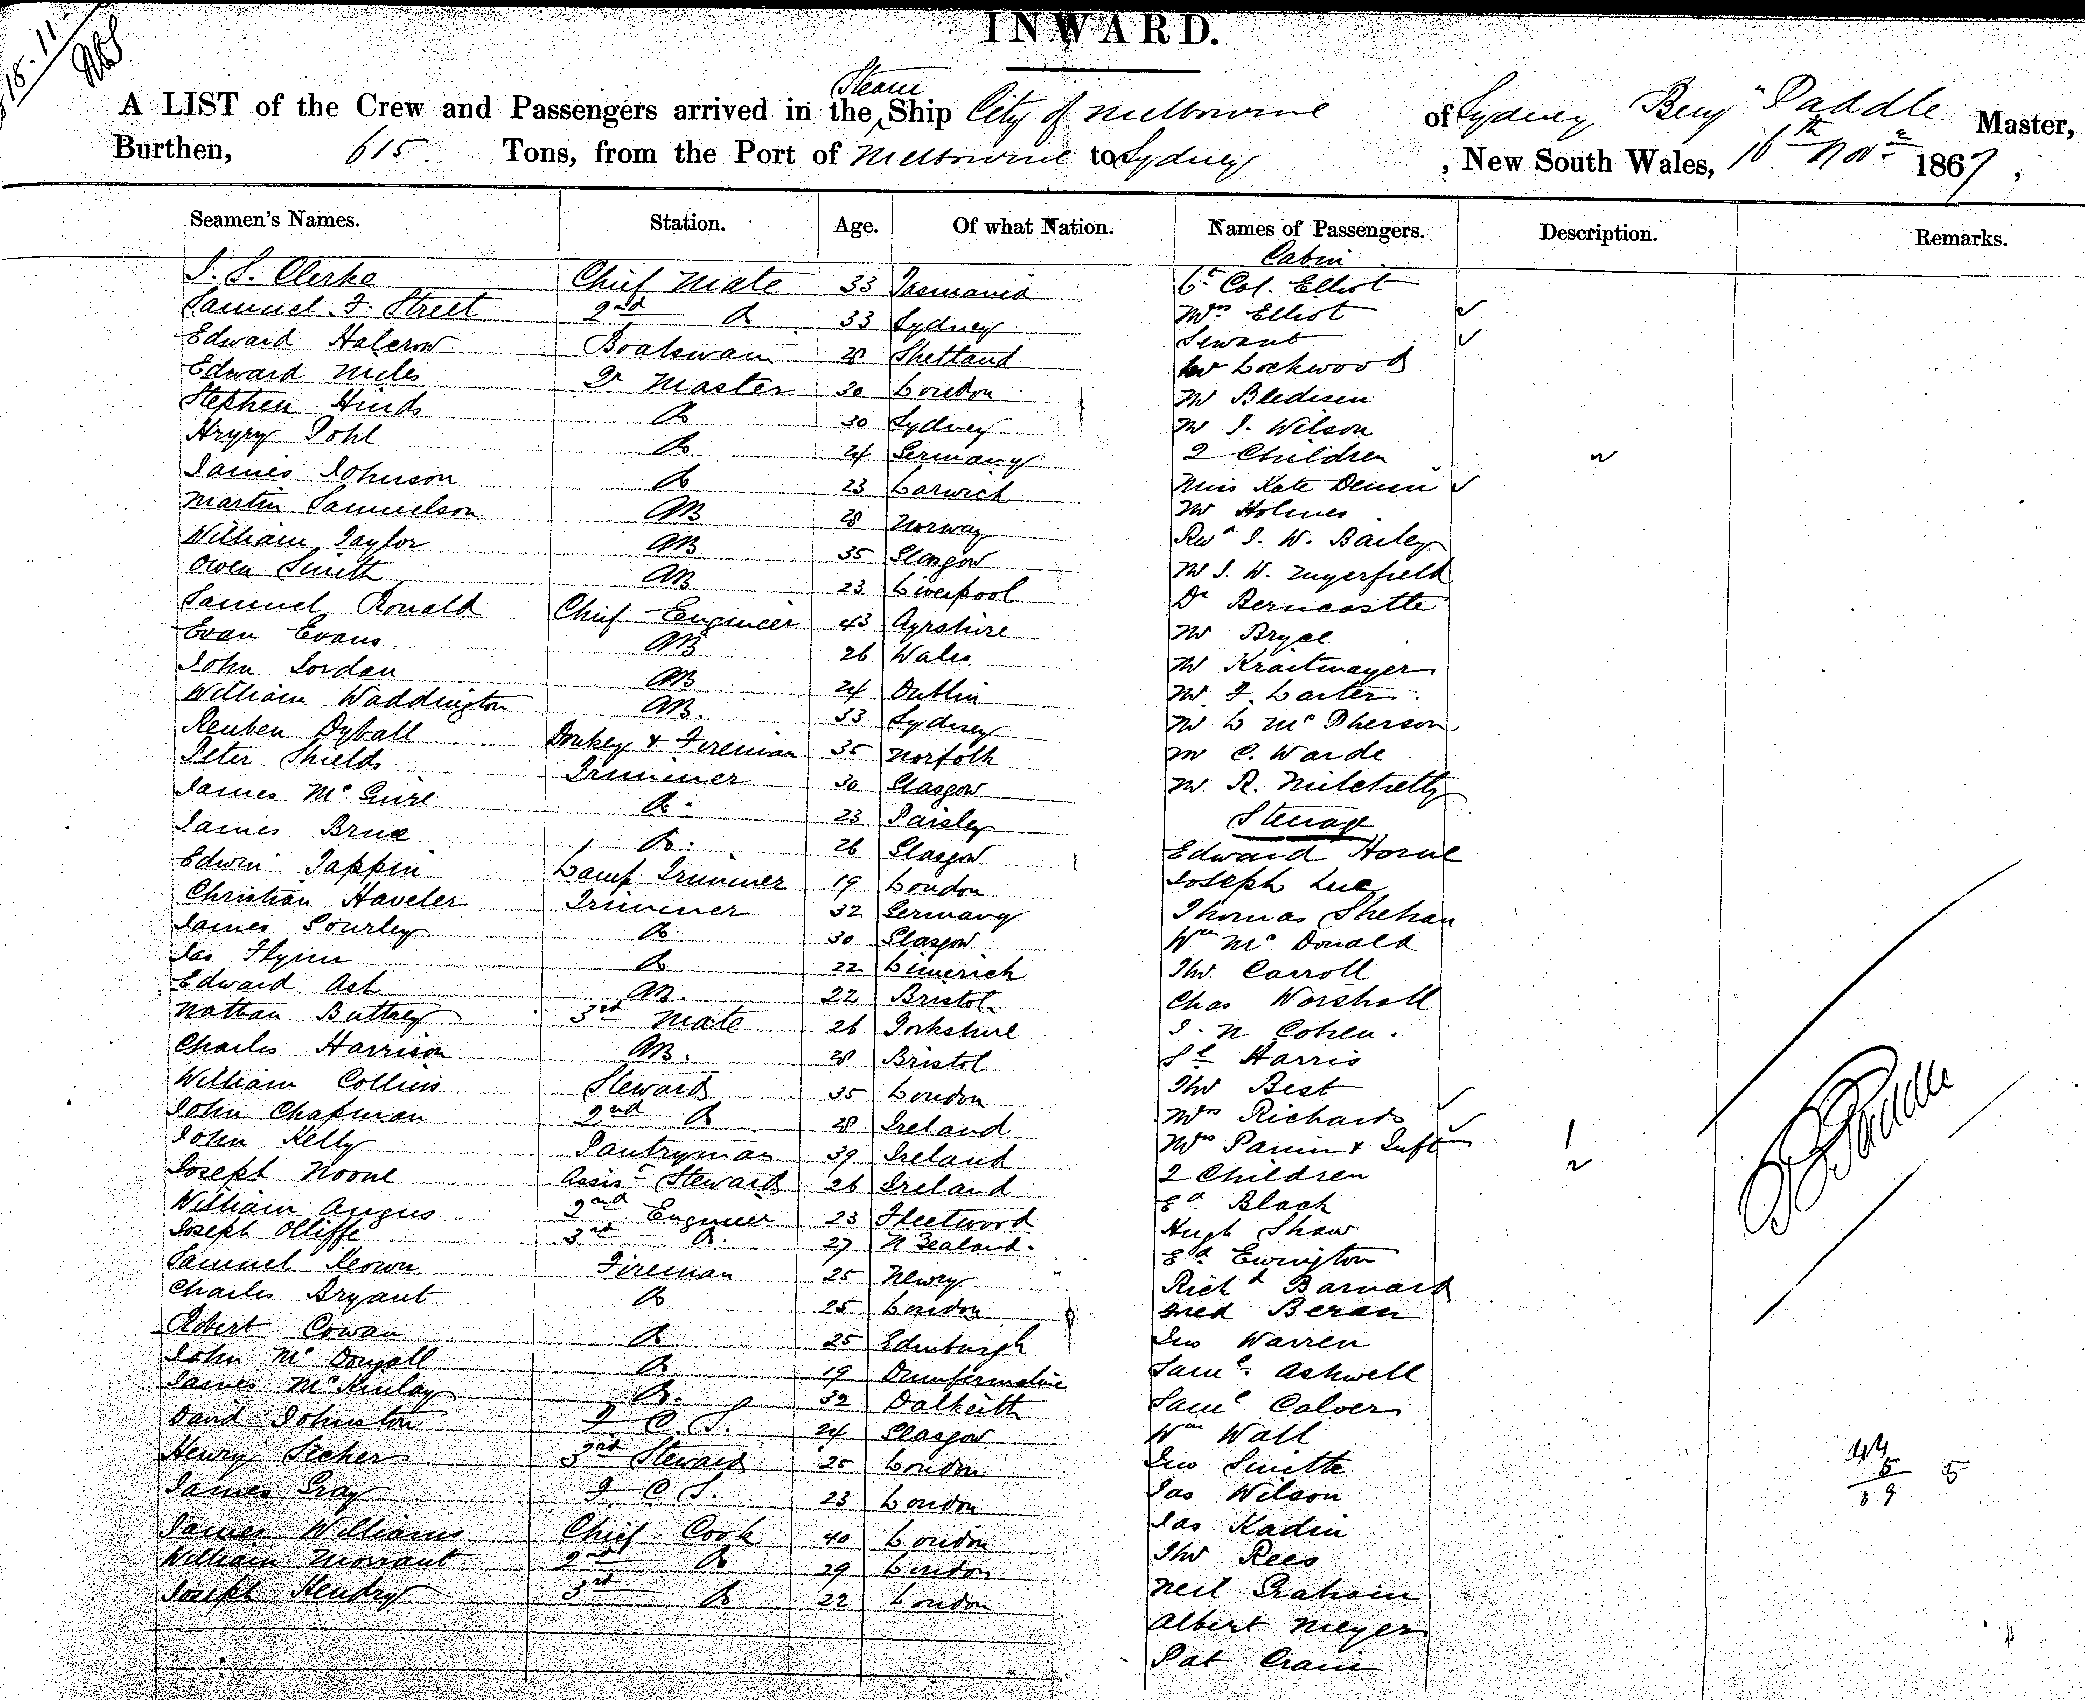 18.11
INWARD.
A LIST of the Crew and Passengers arrived in the Steam Ship City of Melbourne of Sydney Benjn Paddle Master,
Burthen, 615 Tons, from the Port of Melbourne to Sydney, New South Wales, 16th Novr 1867,
Seamen's Names. Station. Age. Of what Nation. Names of Passengers. Description. Remarks.
Cabin
J. S. Clerke Chief Mate 33 Tasmania Lt Col. Elliot
Samuel F. Street 2nd Do 33 Sydney Mrs Elliot
Edward Halcrow Boatswain 28 Shetland Servant
Edward Miles Qr Master 30 London Mr Lockwood
Stephen Hinds Do 30 Sydney Mr Bledisen
Pohl Do 24 Germany Mr J. Wilson
James Johnson Do 23 Larwick 2 Children
Martin Samuelson AB 28 Norway Miss Kate Denin
William Taylor AB 35 Glasgow Mr Holmes
Owen Smith AB 23 Liverpool Revd J. W. Bailey
Samuel Ronald Chief Engineer 43 Ayrshire Mr J. W.
Evan Evans AB 26 Wales Dr Berncastle
John Jordan AB 24 Dublin Mr Bryce
William Waddington AB. 33 Sydney Mr Kraitmayer
Reuben Dyball Donkey & Fireman 35 Norfolk Mr F. Larter
Peter Shields Trimmer 30 Glasgow Mr L McPherson
James McGuire Do 23 Paisley Mr C. Warde
James Bruce Do 26 Glasgow Mr R. Mitchell
Edwin Tappin Lamp Trimmer 19 London Steerage
Christian Haveler Trimmer 32 Germany Edward Horne
James Gourley Do 30 Glasgow Joseph Luc
Jas Flynn Do 22 Limerick Thomas Shehan
Edward Ash AB. 22 Bristol Wm McDonald
Nathan Buttrey 3rd Mate 26 Yorkshire Thos Carroll
Charles Harrison AB. 28 Bristol Chas Worshall
William Collins Steward 35 London J. N Cohen.
John Chapman 2nd Do 28 Ireland Sl Harris
John Kelly Pantryman 39 Ireland Thos Best
Joseph Noone Assist Steward 26 Ireland Mrs Richards
William Angus 2nd Engineer 23 Fleetwood Mrs Panin & Inft
Joseph Olliffe 3rd Do 27 N Zealand 2 Children
Samuel Keown Fireman 25 Newry Ed Black
Charles Bryant Do 25 London Hugh Shaw
Robert Cowan Do 25 Edinburgh Ed Ewington
John McDougall Do 19 Dumfermaline Richd Barnard
James McKinlay Do. 32 Dalkeith Fred Beran
David Johnston F C S. 24 Glasgow Jno Warren
Henry Secher 3rd Steward 25 London Saml Ashwell
James Gray F C S. 23 London Saml Calver
James Williams Chief Cook 40 London Wm Wall
William Morrant 2nd Do 29 London Jno Smith
Joseph Hendry 3rd Do 22 London Jas Wilson
Jas Kadin
Thos Rees
Neil Graham
Albert Meyer
Pat Crain
B Paddle
44
5 5